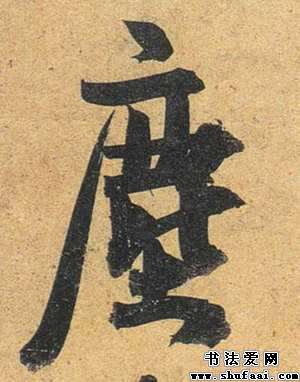 塵
书法爱网
www.shufaai.com